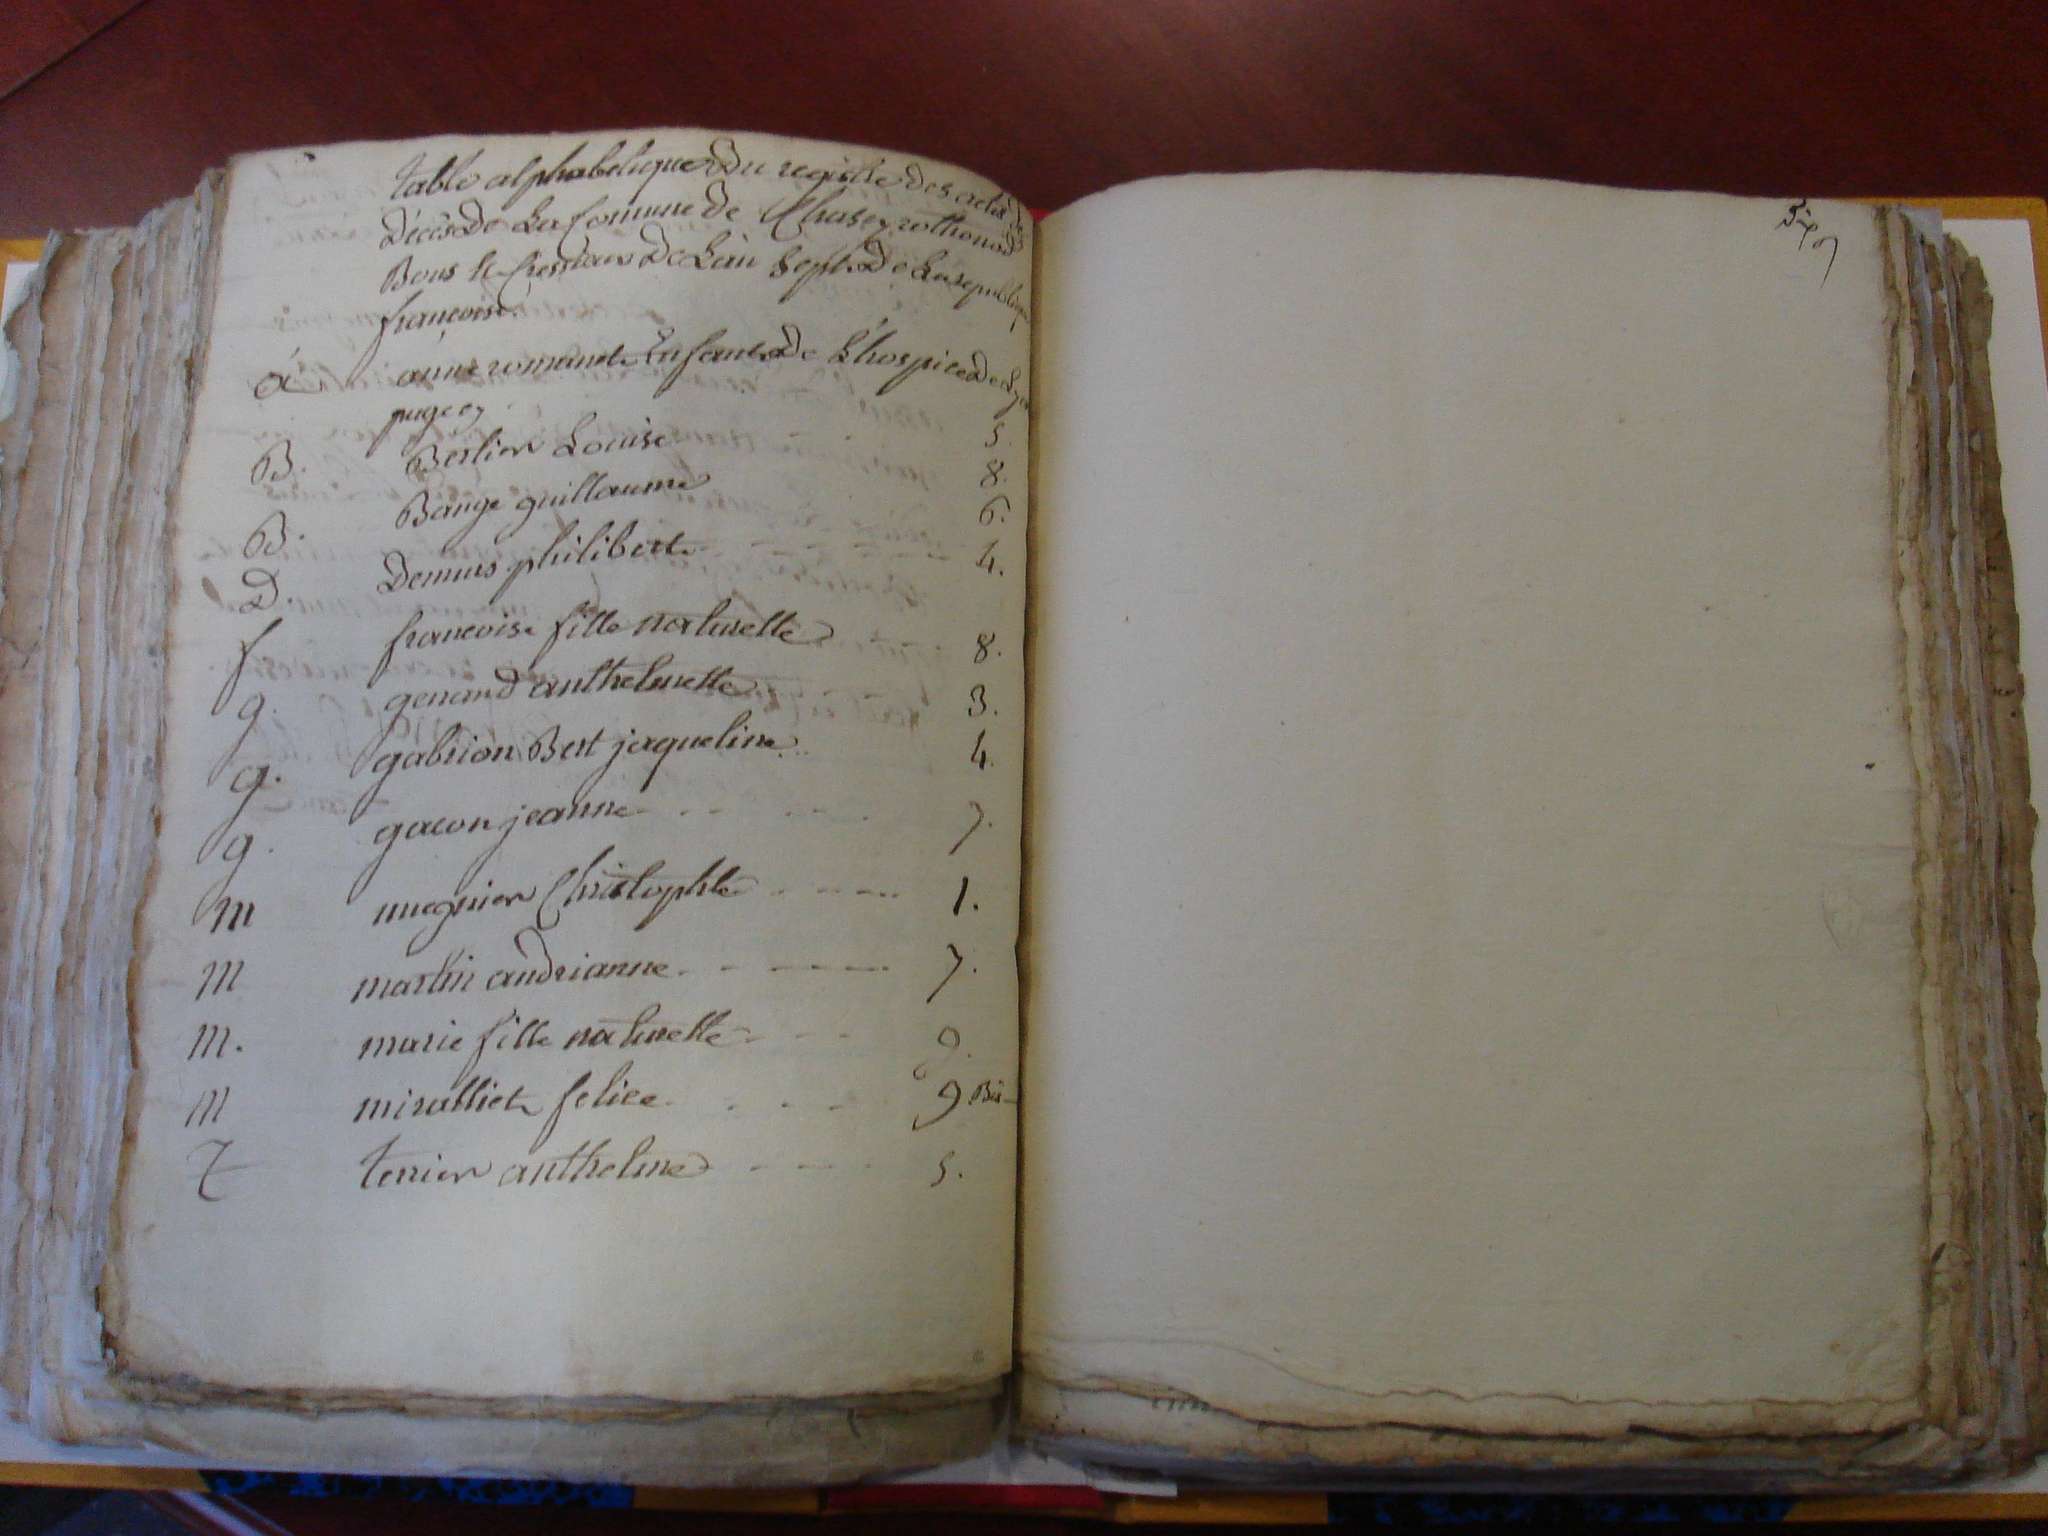 table alphabetique du registre des actes des
décès de La Comune de Chasey rothonod
Bous le Cressieux de L'an Sept de La republique
françoise
a anne romanet Enfant de L'hospice de Lyon
page 5.
B. Berlier Louise 8.
B. Bange guillaume 6.
D. Demurs philibert 4.
f françoise fille naturelle 8.
g. genand anthelmette 3.
g. gabrion Bert jaqueline 4.
g. gacon jeanne 7.
m mugnier Christophle 1.
m martin andrianne 7.
m. marie fille naturelle 9.
m miralliet felice 9 Bis
t terrier anthelme 5.